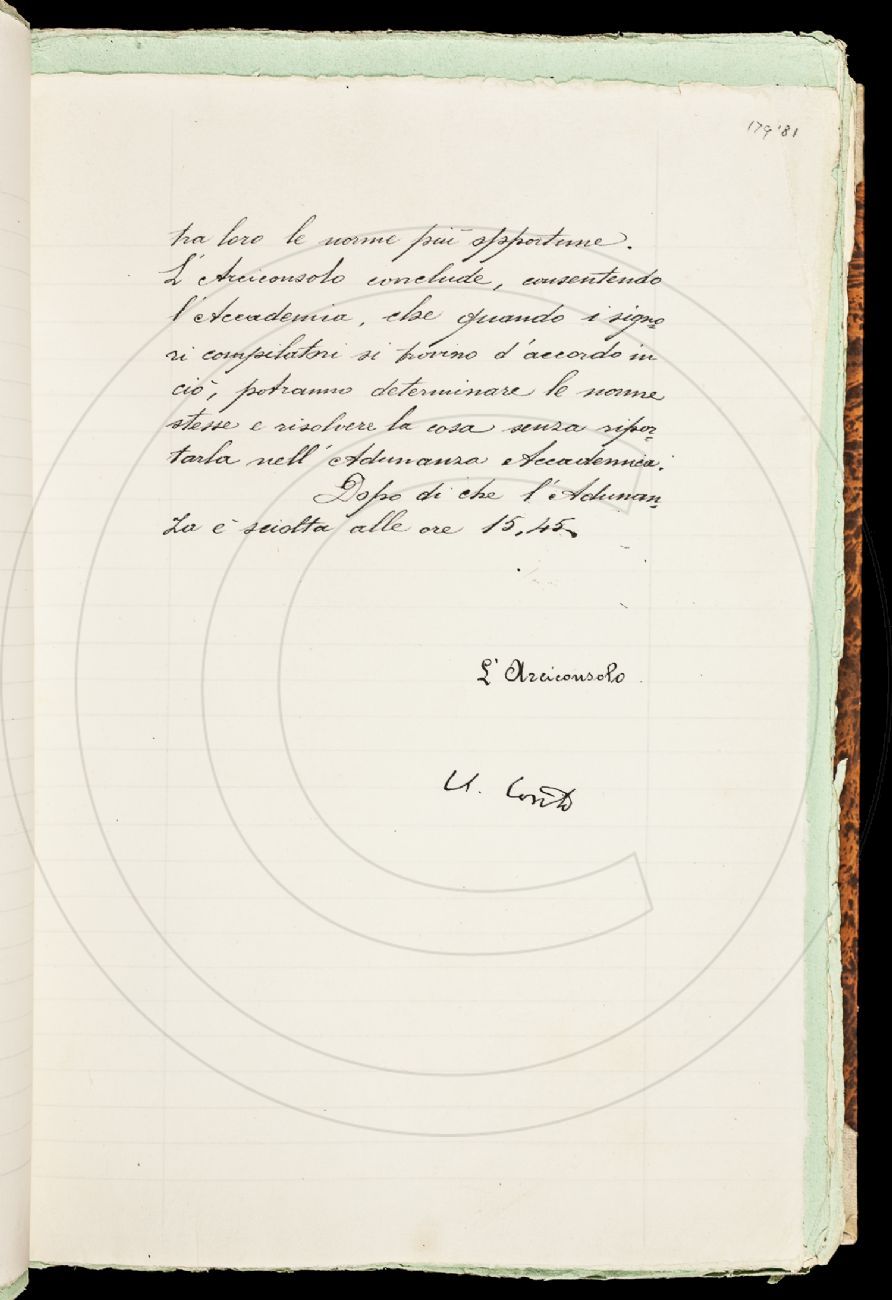 179 '81
tra loro le norme più opportune.
L'Arciconsolo conclude, consentendo
l'Accademia, che quando i signo=
ri compilatori si trovino d'accordo in
ciò, potranno determinare le norme
stesse e risolvere la cosa senza ripor=
tarla nell'Adunanza Accademica.
Dopo di che l'Adunan=
za è sciolta alle ore 15,45.
L'Arciconsolo